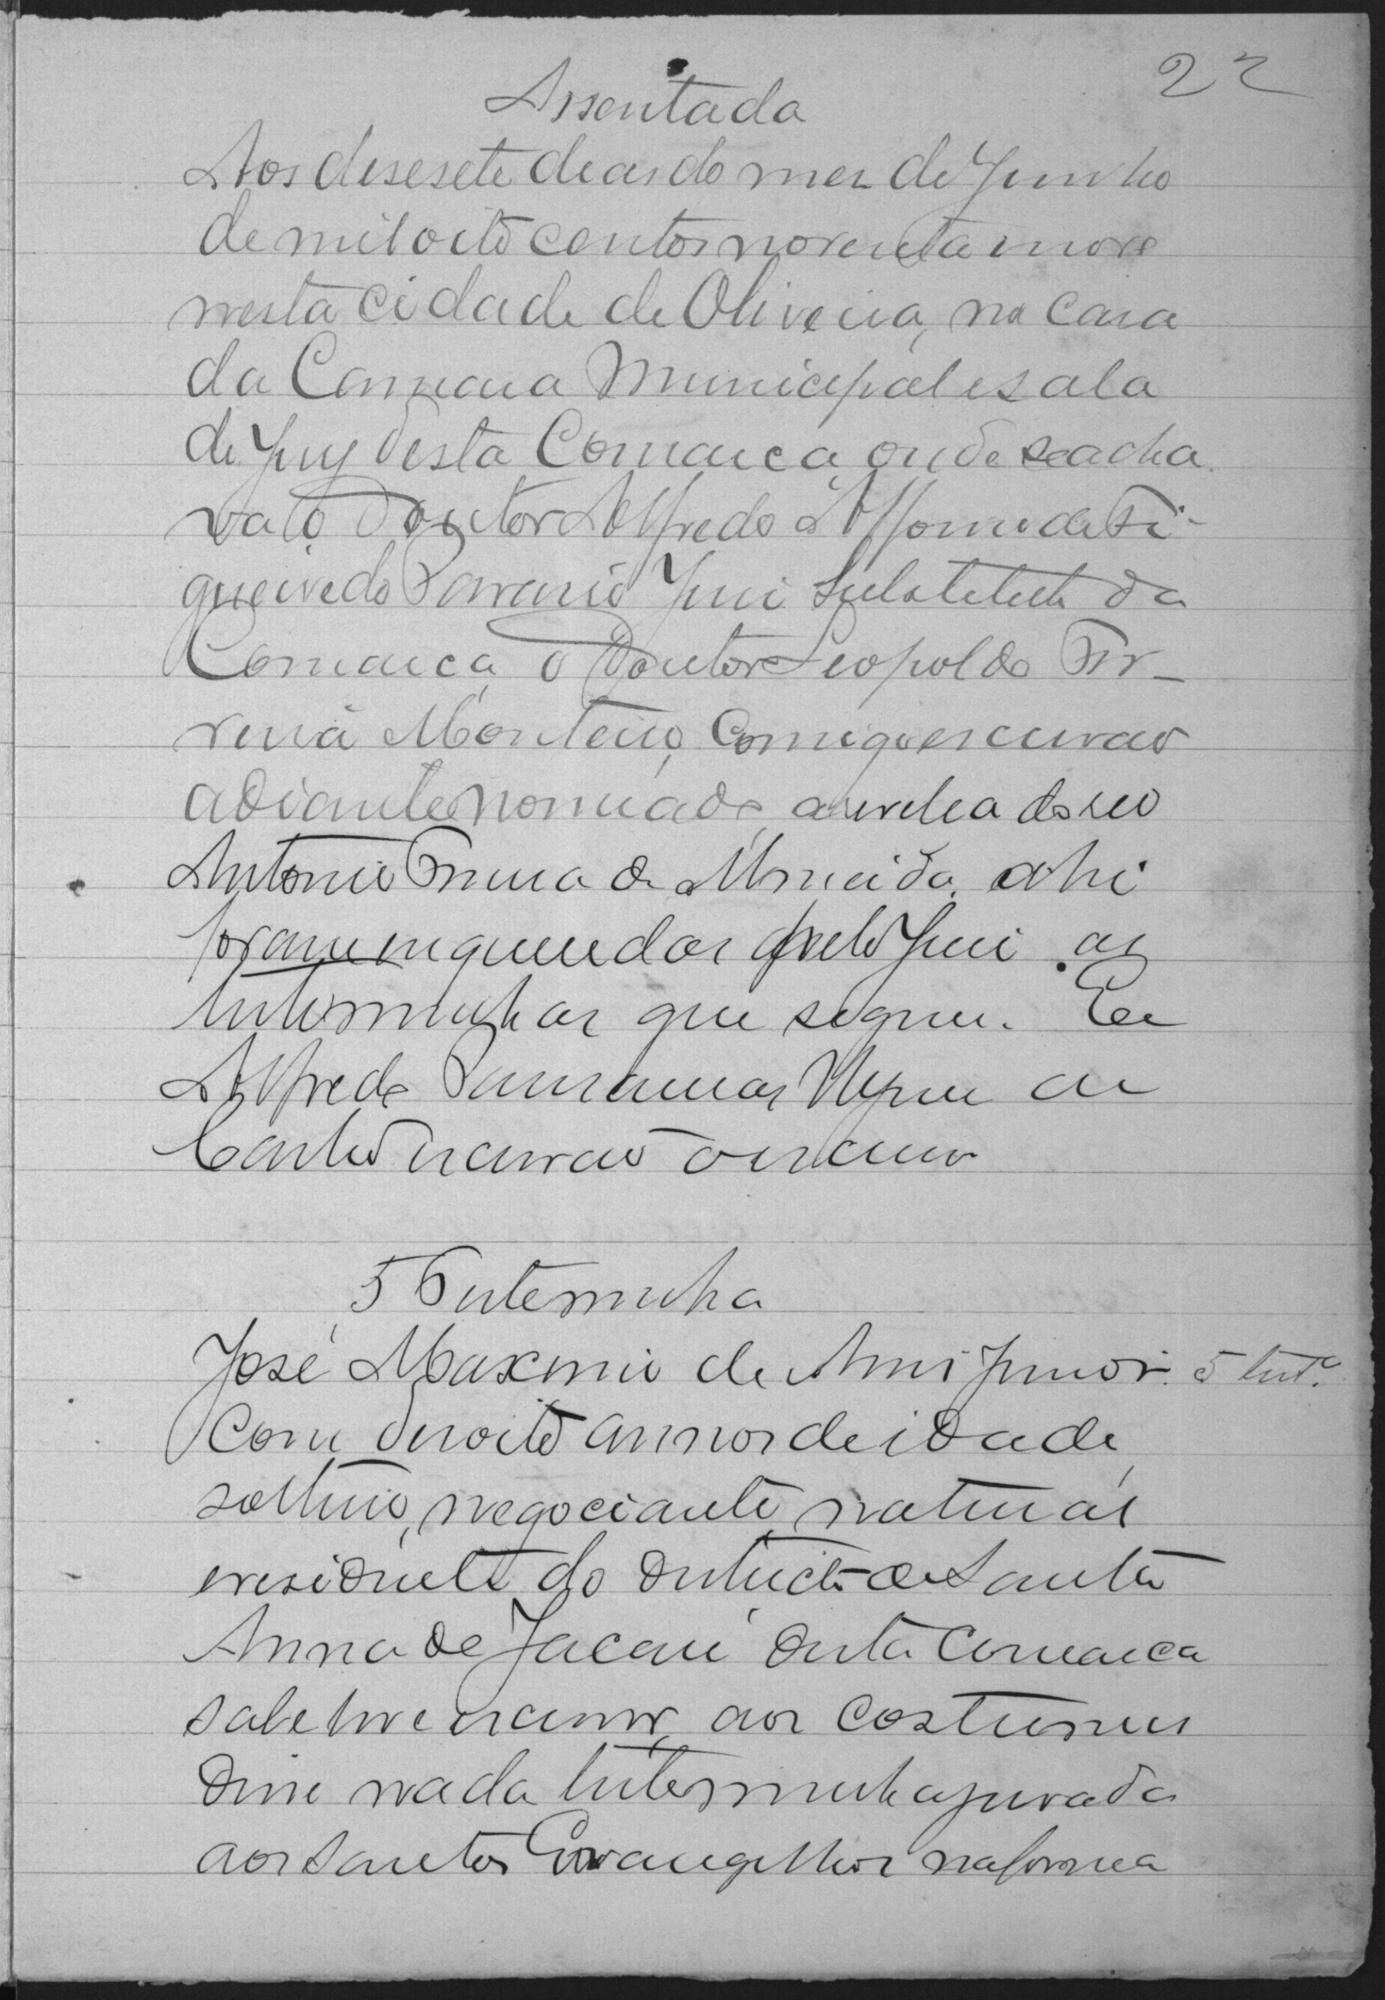 22
Assentada
Aos desesete dias do mez de Junho
de mil oito centos noventa e nove
nesta cidade de Oliveira, na casa
da Camara Municipal e sala
do Jury desta Comarca, onde se acha
va o Doutor Alfredo Affonso de Fi-
gueiredo Paraiso Juiz Substituto da
Comarca, o Doutor Leopoldo Fer-
reira Monteiro, Comigo escrivão
adiante nomeado, a revelia do reo
Antonio de Almeida, ahi
foram inqueridas pelo Juiz as
testemunhas que seguem. Eu
Alfredo de
Castro escrivão o escrevi
5 Testemunha
José Maximo de Junior. 5 test.ª
Com desoito annos de idade,
solteiro, negociante, natural
e residente do districto de Santa
Anna de Jacaré desta Comarca
sabe ler e escrever, aos costumes
disse nada testemunha jurada
aos Santos Evangelhos na forma